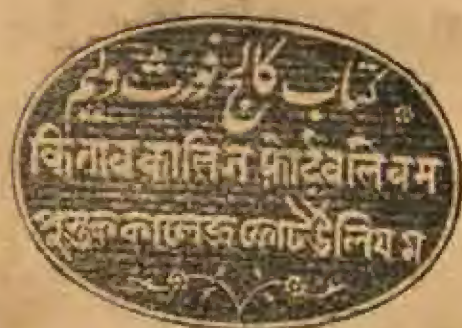 کتاب کالج فورٹ ولیم
किताब कालिज फ़ोर्टवलियम
পুস্তক কালেজ ফোর্ট উলিয়ম